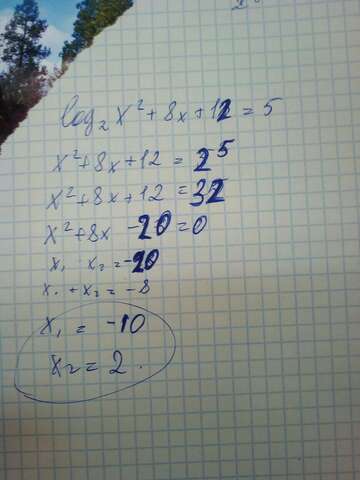 log₂ x² + 8x + 12 = 5
x² + 8x + 12 = 2⁵
x² + 8x + 12 = 32
x² + 8x - 20 = 0
x₁ · x₂ = -20
x₁ + x₂ = -8
x₁ = -10
x₂ = 2.